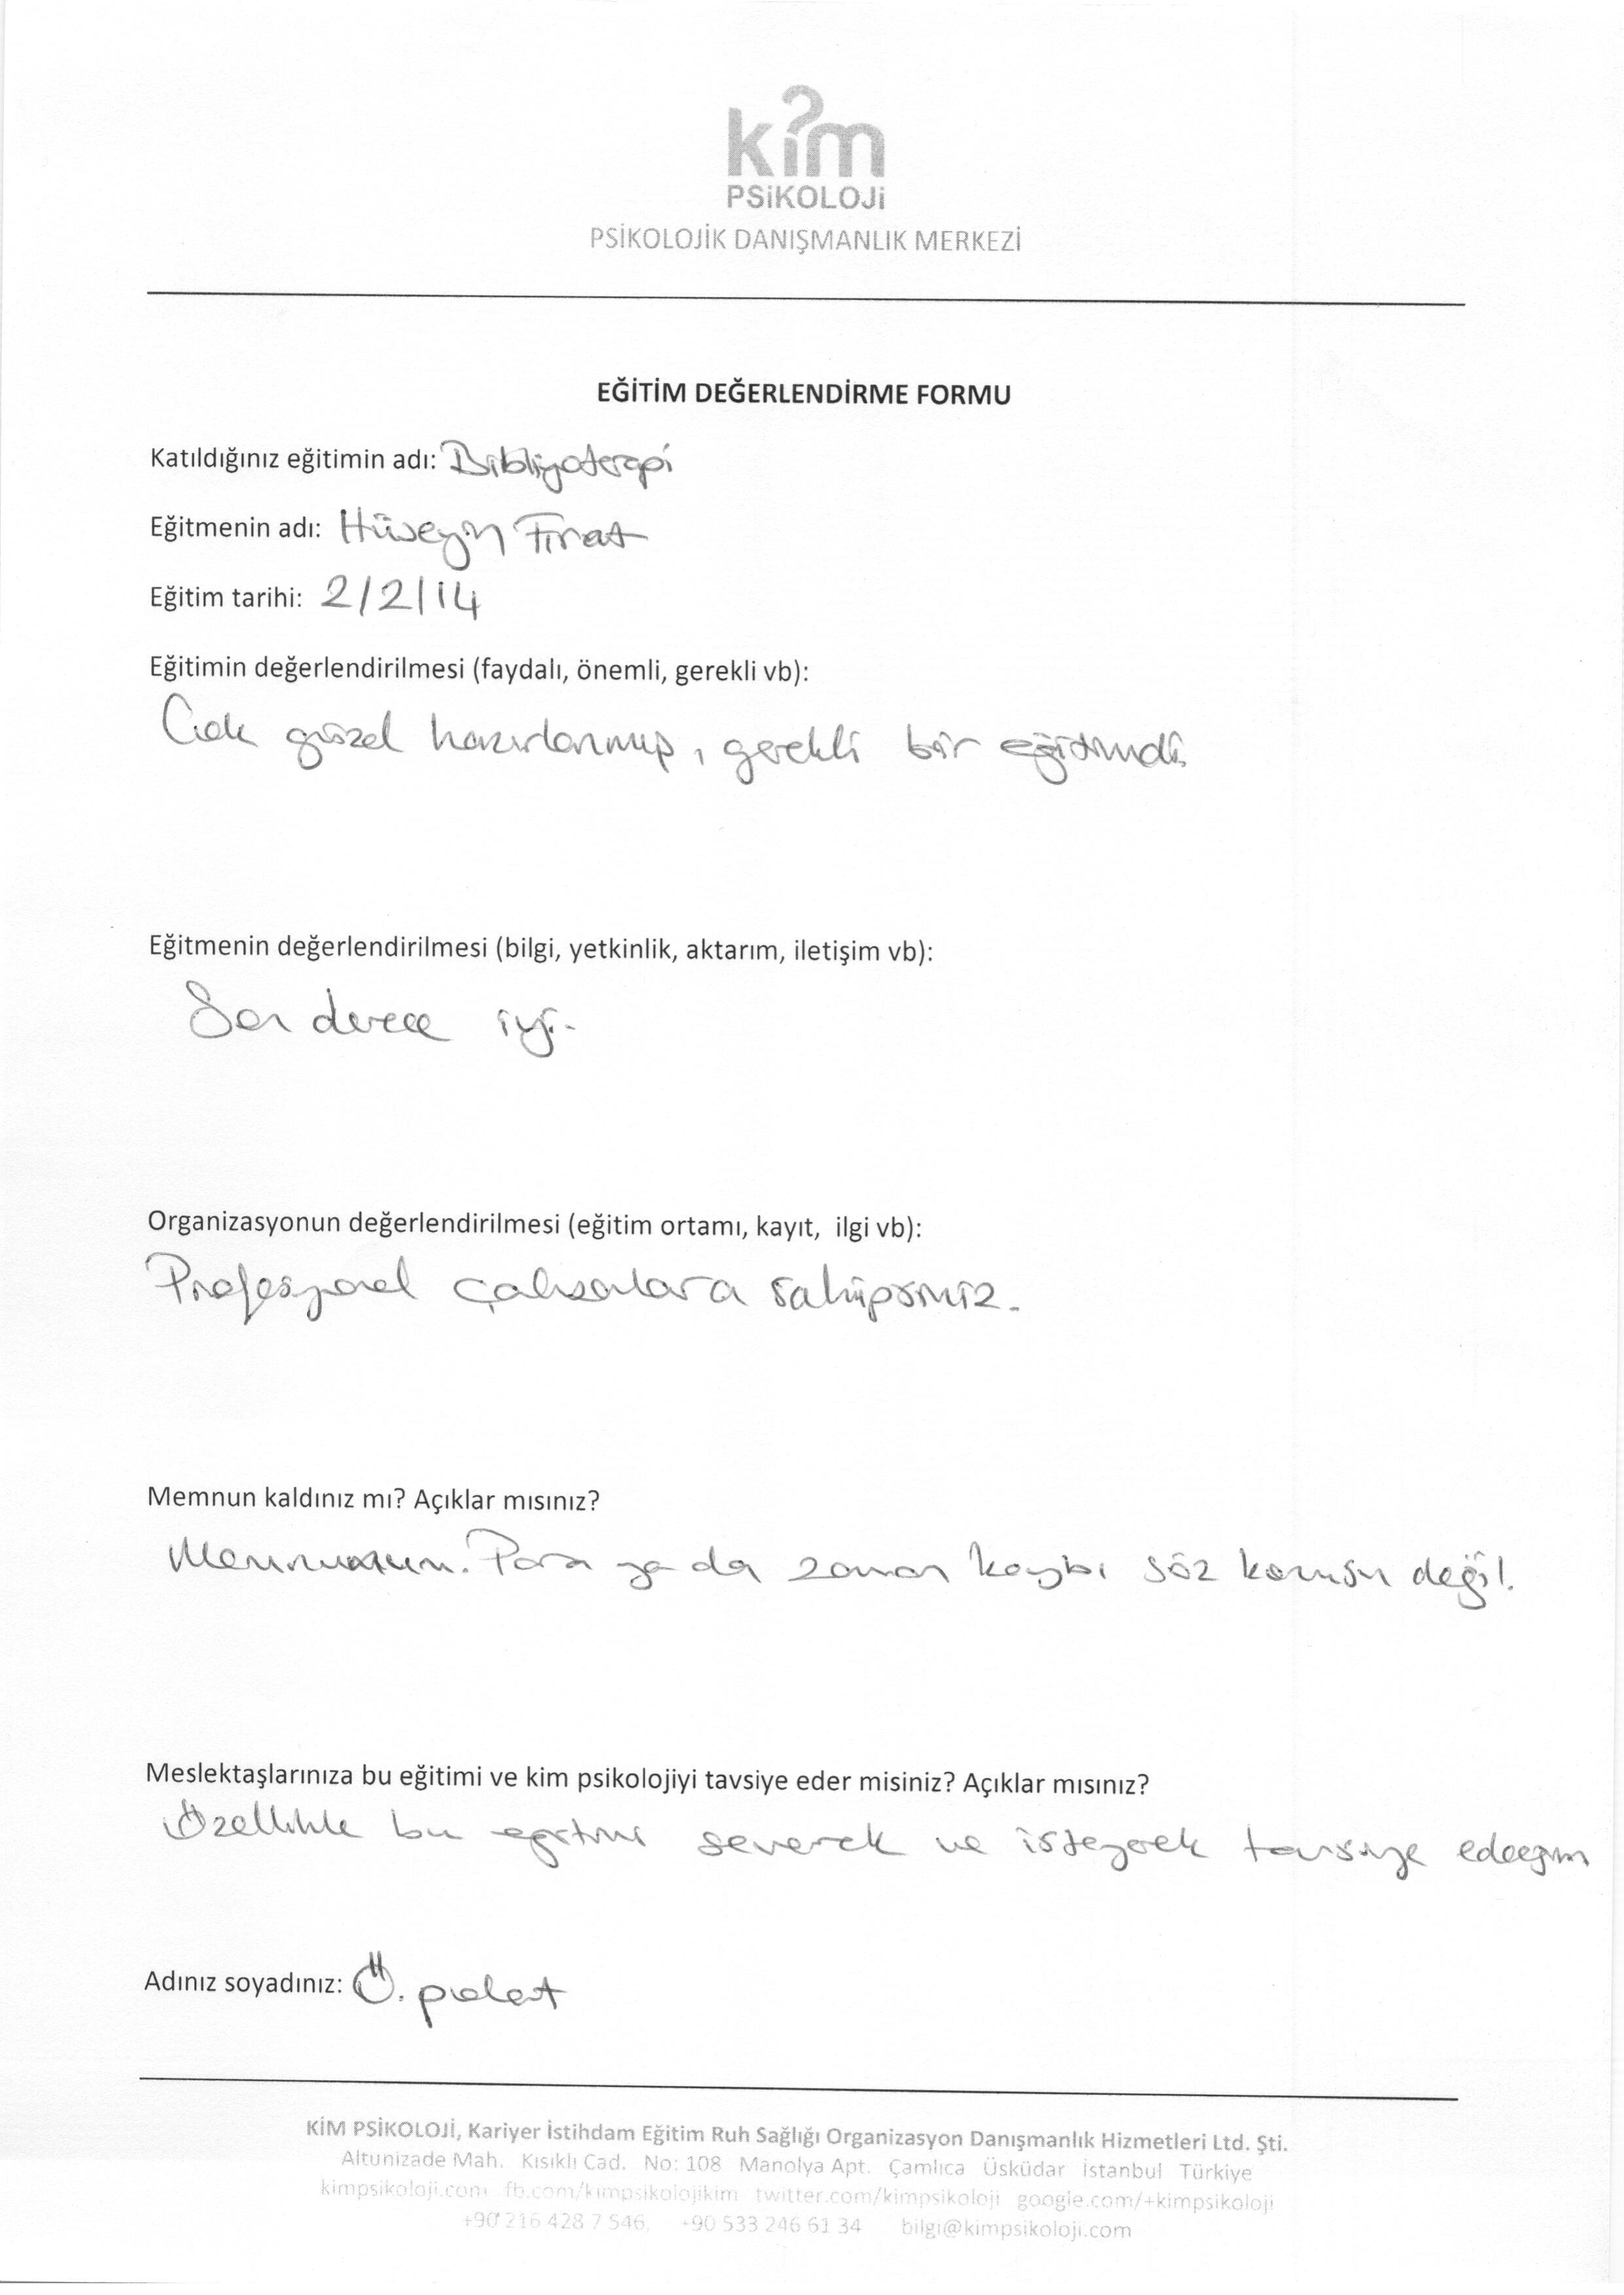 kim
PSiKOLOJi
PSİKOLOJİK DANIŞMANLIK MERKEZİ
EĞİTİM DEĞERLENDİRME FORMU
Katıldığınız eğitimin adı: Bibliyoterapi
Eğitmenin adı: Hüseyin Fırat
Eğitim tarihi: 2/2/14
Eğitimin değerlendirilmesi (faydalı, önemli, gerekli vb):
Çok güzel hazırlanmış, gerekli bir eğitimdi.
Eğitmenin değerlendirilmesi (bilgi, yetkinlik, aktarım, iletişim vb):
Son derece iyi.
Organizasyonun değerlendirilmesi (eğitim ortamı, kayıt, ilgi vb):
Profesyonel çalışanlara sahipsiniz.
Memnun kaldınız mı? Açıklar mısınız?
Memnunum. Para ya da zaman kaybı söz konusu değil.
Meslektaşlarınıza bu eğitimi ve kim psikolojiyi tavsiye eder misiniz? Açıklar mısınız?
Özellikle bu eğitimi severek ve isteyerek tavsiye edeceğim
Adınız soyadınız: Ö. polat
KİM PSİKOLOJİ, Kariyer İstihdam Eğitim Ruh Sağlığı Organizasyon Danışmanlık Hizmetleri Ltd. Şti.
Altunizade Mah. Kısıklı Cad. No: 108 Manolya Apt. Çamlıca Üsküdar İstanbul Türkiye
kimpsikoloji.com fb.com/kimpsikolojikim twitter.com/kimpsikoloji google.com/+kimpsikoloji
+90 216 428 7 546, +90 533 246 61 34 bilgi@kimpsikoloji.com